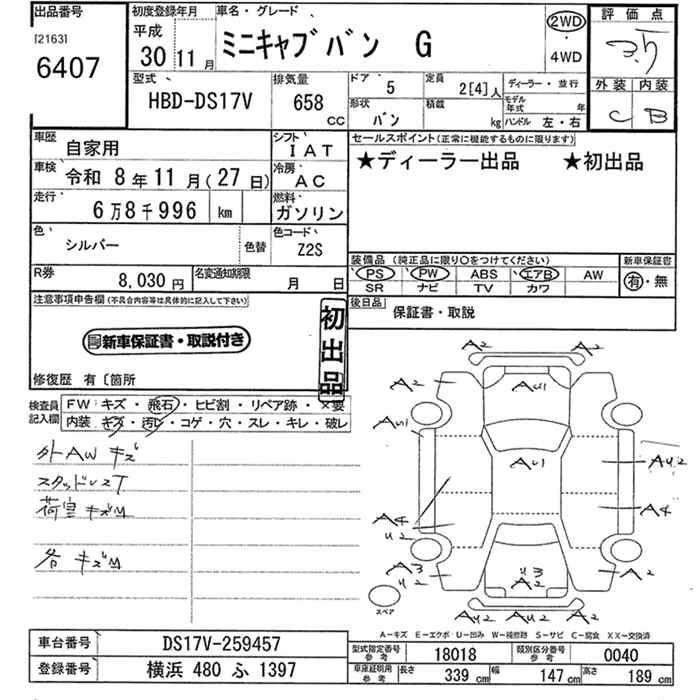 出品番号
[2163]
6407
初度登録年月
平成
30 11月
車名・グレード
ミニキャブバン G
2WD
・
4WD
評価点
3.5
外装 内装
C B
型式
HBD-DS17V
排気量
658
CC
ドア 5
形状 バン
定員 2[4]人
積載 kg
ディーラー・並行
モデル年式 年
ハンドル 左・右
車歴 自家用
シフト IAT
車検 令和 8年11月(27日)
冷房 AC
走行 6万8千996 km
燃料 ガソリン
色 シルバー
色替
色コード Z2S
R券 8,030円
名変通知期限 月 日
セールスポイント(正常に機能するものに限ります)
★ディーラー出品 ★初出品
装備品(純正品に限り○をつけてください)
PS PW ABS エアB AW
SR ナビ TV カワ
新車保証書
有・無
後日品 保証書・取説
注意事項申告欄(不具合内容等は具体的に記入して下さい)
新車保証書・取説付き
初出品
修復歴 有〔箇所
検査員記入欄
FW:キズ・飛石・ヒビ割・リペア跡・×要
内装:キズ・汚レ・コゲ・穴・スレ・キレ・破レ
外AW キズ
スタッドレスT
荷室 キズM
各 キズM
A2 A2
A2 AU1 A2
AU1
AU1 AU2
A4 U2 A4
A3 U2 U3 A2 A2
AU2 AU2 AU2
スペア
A-キズ E-エクボ U-凹み W-補修跡 S-サビ C-腐食 XX-交換済
車台番号 DS17V-259457
登録番号 横浜 480 ふ 1397
型式指定番号 参考 18018
類別区分番号 参考 0040
車庫証明用 参考 長さ 339 cm 幅 147 cm 高さ 189 cm